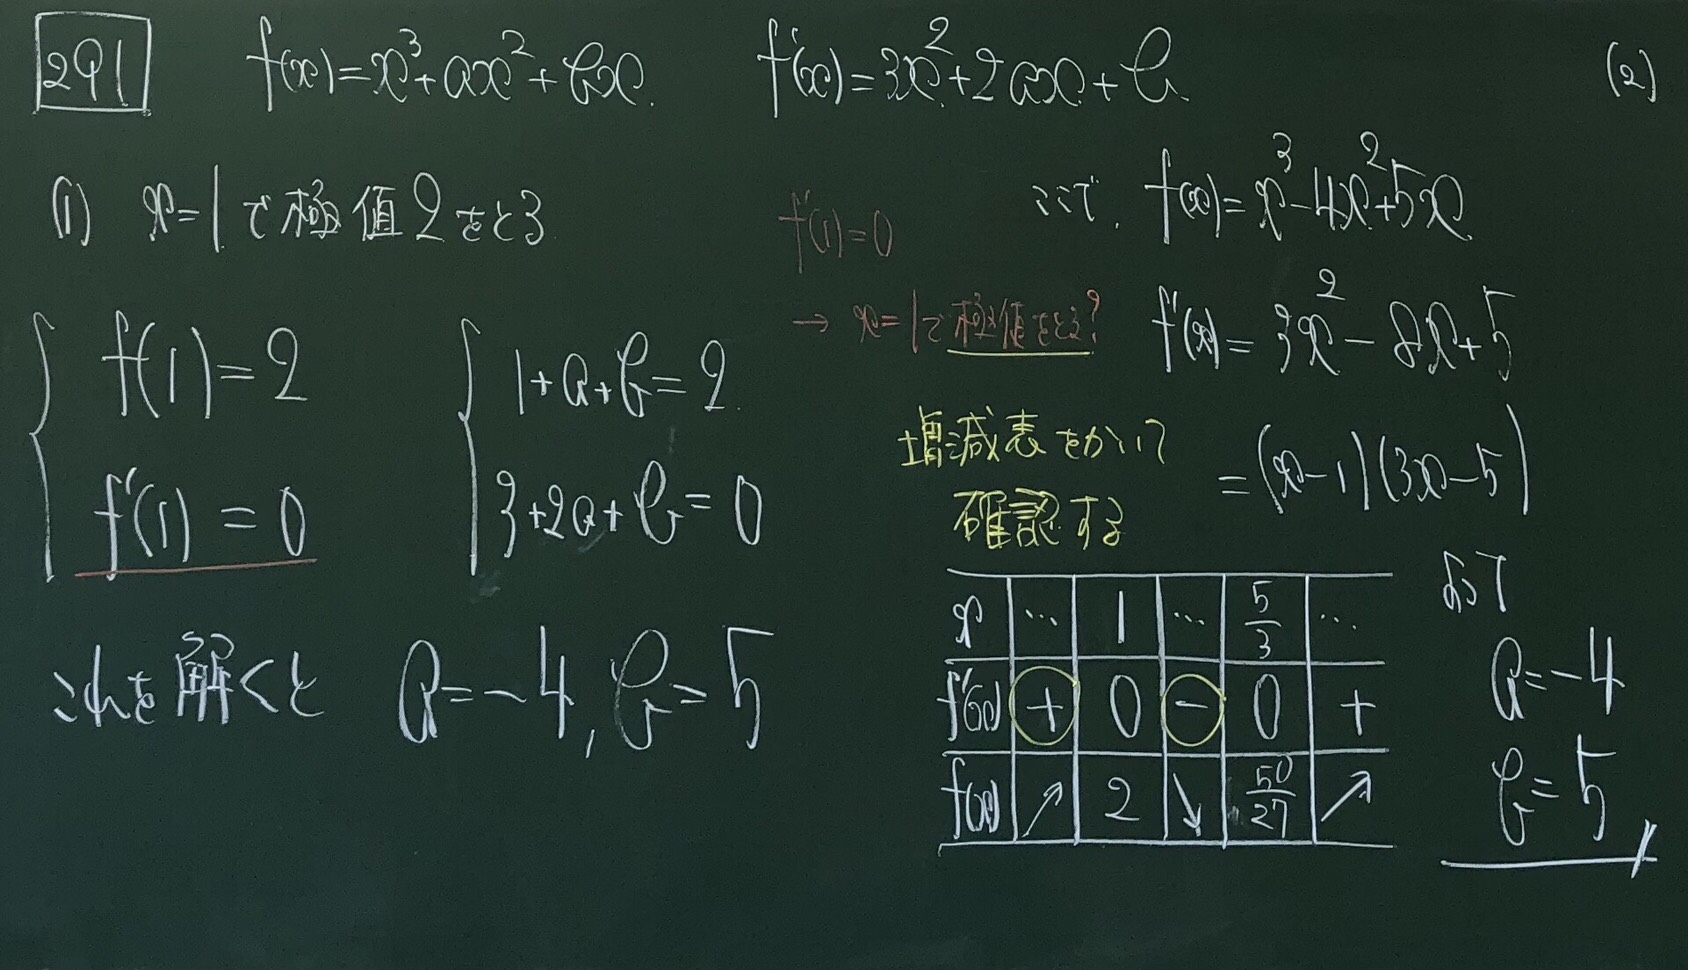 291 f(x)=x³+ax²+bx. f'(x)=3x²+2ax+b
(1) x=1で極値2をとる
f(1)=2
f'(1)=0
1+a+b=2
3+2a+b=0
これを解くと a=-4, b=5
f'(1)=0
→ x=1で極値をとる?
増減表をかいて
確認する
(2)
ここで, f(x)=x³-4x²+5x
f'(x)=3x²-8x+5
=(x-1)(3x-5)
x … 1 … 5/3 …
f'(x) + 0 - 0 +
f(x) ↗ 2 ↘ 50/27 ↗
よって
a=-4
b=5